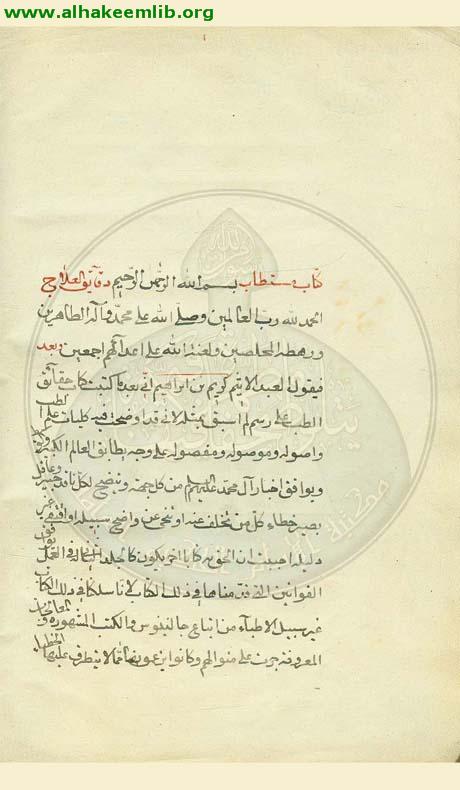 www.alhakeemlib.org
كتاب مستطاب بسم الله الرحمن الرحيم دقايق العلاج
الحمد لله رب العالمين وصلى الله على محمد وآله الطاهرين
ورهطه المخلصين ولعنة الله على اعدائهم اجمعين وبعد
فيقول العبد الاثيم كريم بن ابراهيم انى بعد ما كتبت كتاب حقايق
الطب على رسم لم اسبق بمثله لانى قد اوضحت فيه كليات علم الطب
واصوله وموصوله ومفصوله على وجه يطابق العالم الكبير
ويوافق اخبار آل محمد عليهم من كل جهة ويتضح لكل ناقد خبير وعاقل
بصير خطاء كل من تخلف عنه او تنحى عن واضح سبيله او
دليله احببت ان الحقه كتابا اخر يكون
القوانين التى قدمناها فى ذلك الكتاب لانا سلكنا فى ذلك الكتاب
غير سبيل الاطباء من اتباع جالينوس والكتب المشهورة
المعروفة جرت على منوالهم وكانوا